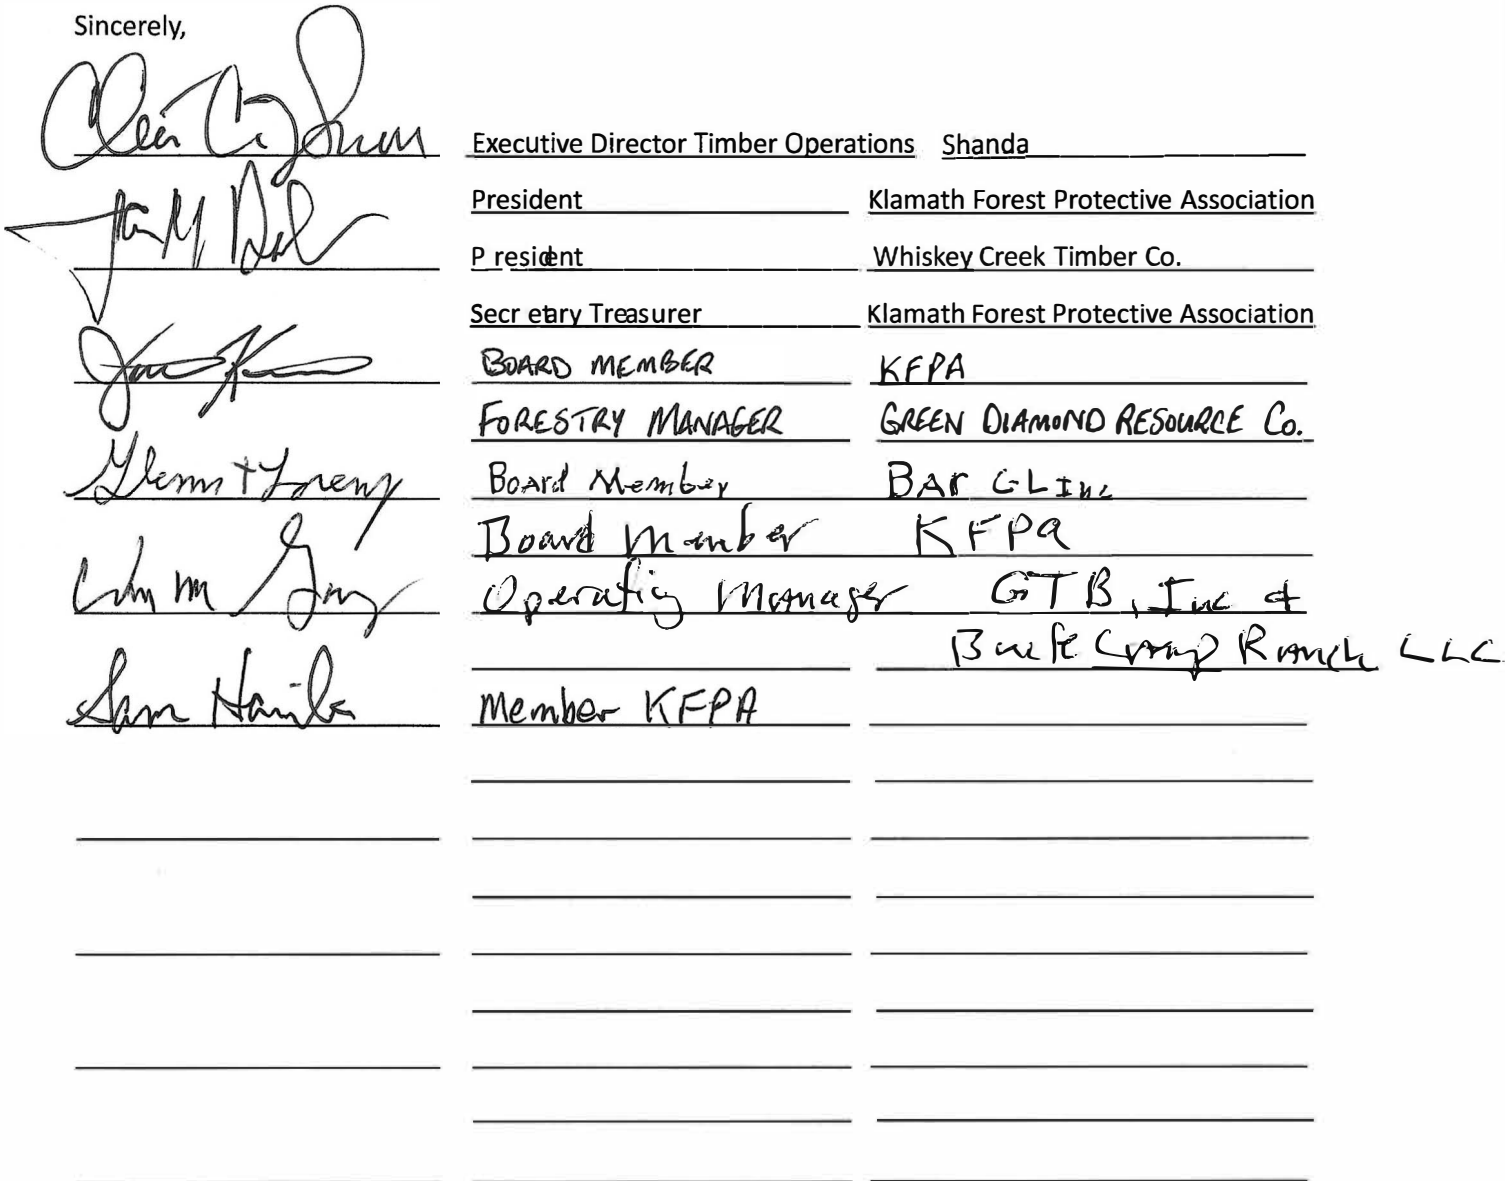 Sincerely,
Executive Director Timber Operations Shanda
President Klamath Forest Protective Association
President Whiskey Creek Timber Co.
Secretary Treasurer Klamath Forest Protective Association
BOARD MEMBER KFPA
FORESTRY MANAGER GREEN DIAMOND RESOURCE Co.
Glenn Board Member BAr CL Inc
Board Member KFPA
Operating Manager GTB, Inc &
Butte Creek Ranch LLC
Sam Member KFPA